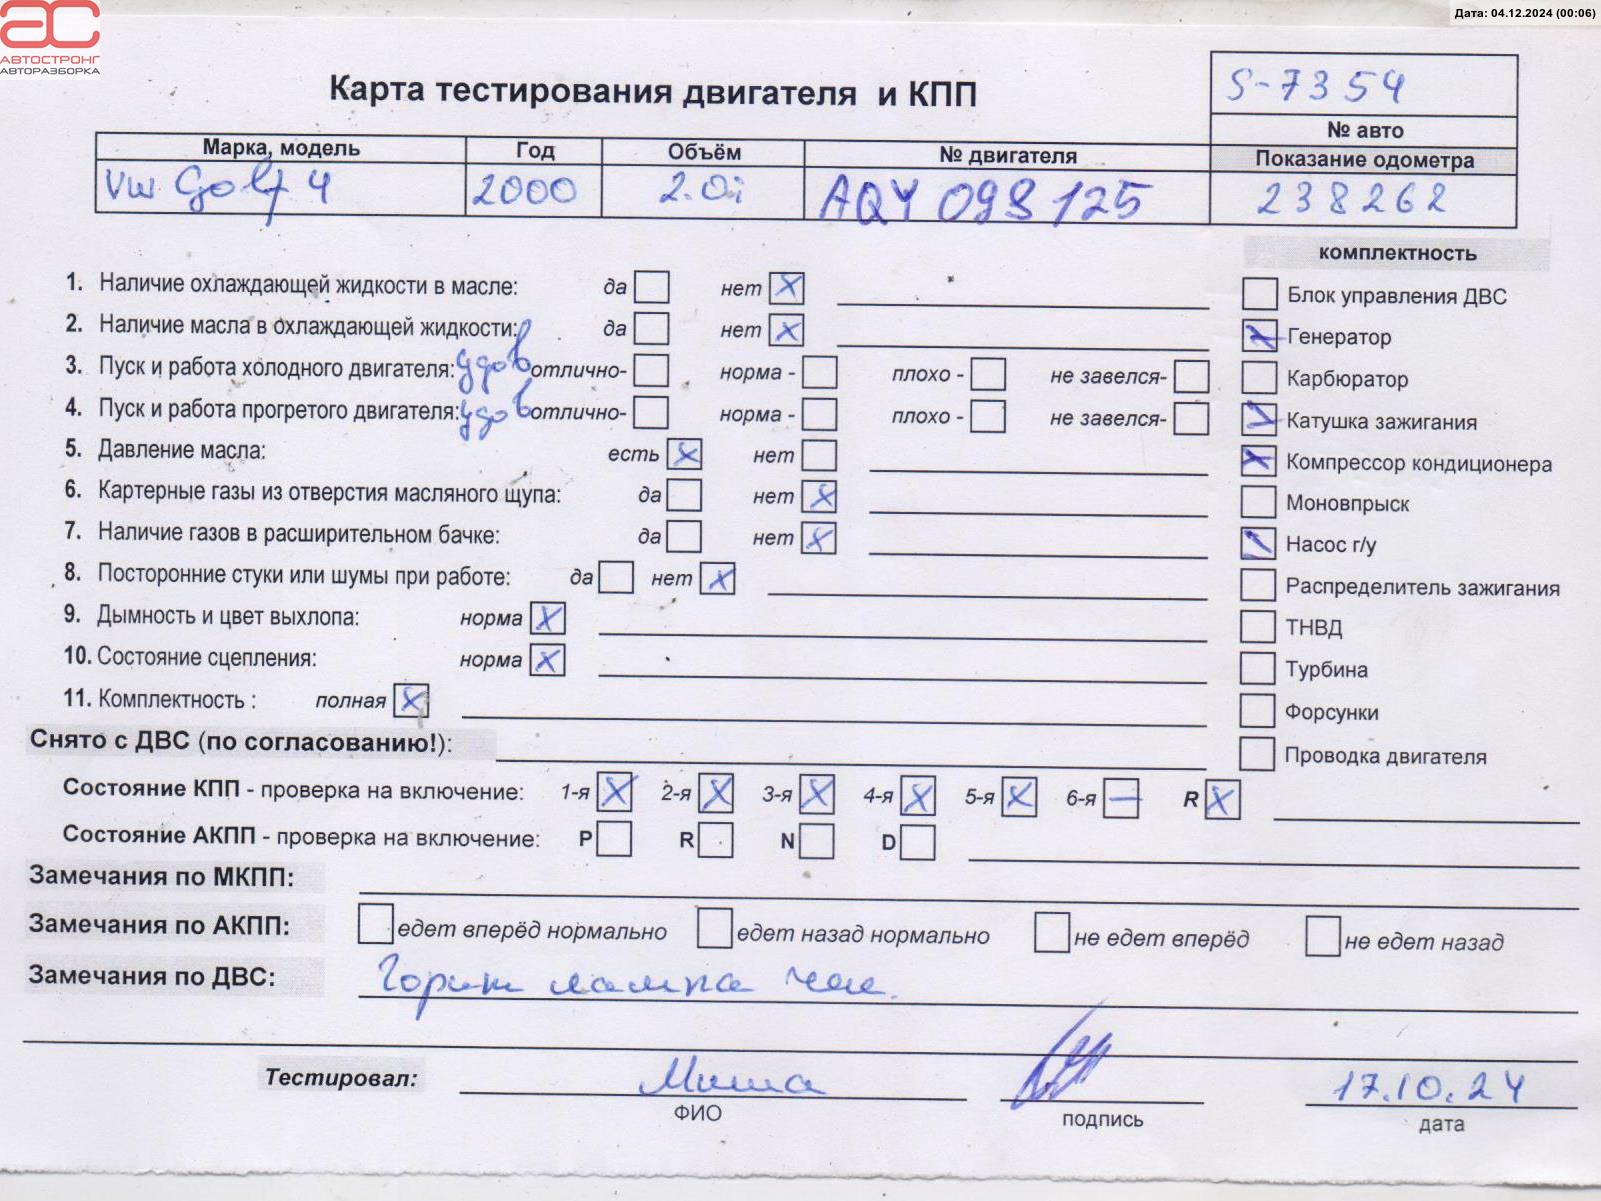 Дата: 04.12.2024 (00:06)
АС
АВТОСТРОНГ
АВТОРАЗБОРКА
Карта тестирования двигателя и КПП
S-7354
№ авто
Марка, модель Год Объём № двигателя Показание одометра
VW Golf 4 2000 2.0i AQY 098125 238262
комплектность
1. Наличие охлаждающей жидкости в масле: да нет X
Блок управления ДВС
2. Наличие масла в охлаждающей жидкости: да нет X
Генератор
3. Пуск и работа холодного двигателя: удов отлично- норма - плохо - не завелся-
Карбюратор
4. Пуск и работа прогретого двигателя: удов отлично- норма - плохо - не завелся-
Катушка зажигания
5. Давление масла: есть X нет
Компрессор кондиционера
6. Картерные газы из отверстия масляного щупа: да нет X
Моновпрыск
7. Наличие газов в расширительном бачке: да нет X
Насос г/у
8. Посторонние стуки или шумы при работе: да нет X
Распределитель зажигания
9. Дымность и цвет выхлопа: норма X
ТНВД
10. Состояние сцепления: норма X
Турбина
11. Комплектность : полная X
Форсунки
Снято с ДВС (по согласованию!):
Проводка двигателя
Состояние КПП - проверка на включение: 1-я X 2-я X 3-я X 4-я X 5-я X 6-я — R X
Состояние АКПП - проверка на включение: P R N D
Замечания по МКПП:
Замечания по АКПП: едет вперёд нормально едет назад нормально не едет вперёд не едет назад
Замечания по ДВС: Горит лампа чек.
Тестировал: Миша 17.10.24
ФИО подпись дата